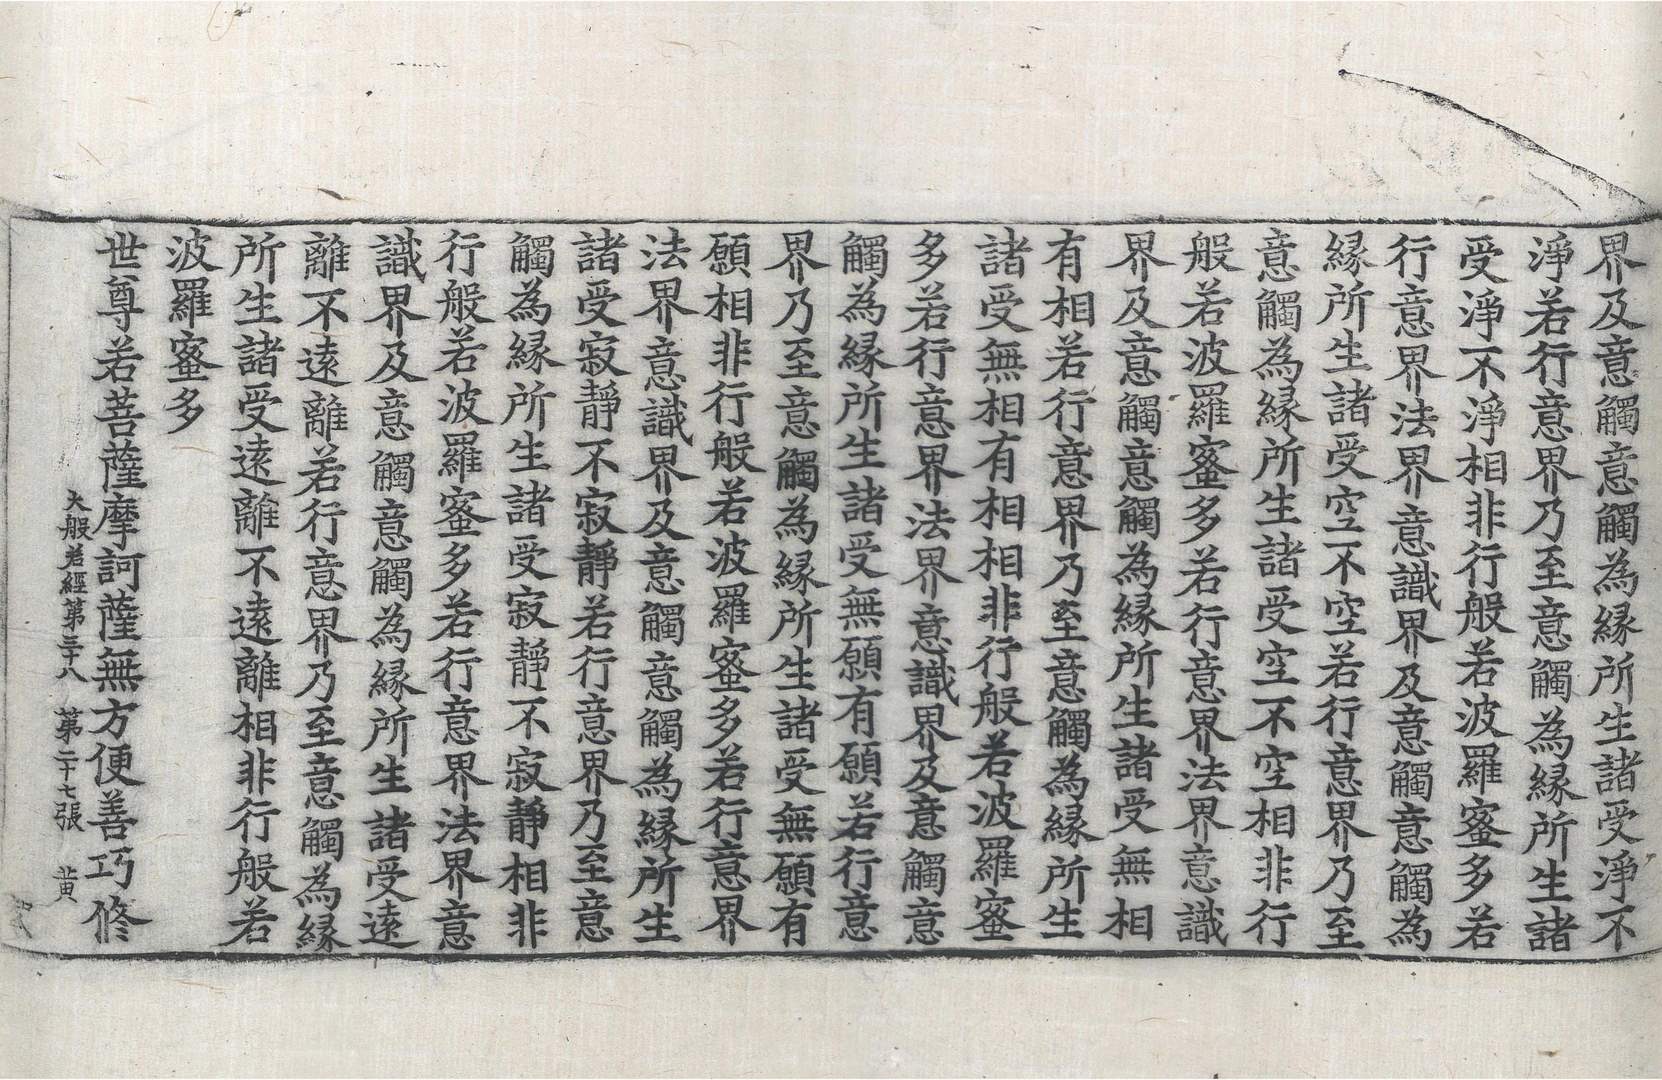 界及意觸意觸為緣所生諸受淨不
淨若行意界乃至意觸為緣所生諸
受淨不淨相非行般若波羅蜜多若
行意界法界意識界及意觸意觸為
緣所生諸受空不空若行意界乃至
意觸為緣所生諸受空不空相非行
般若波羅蜜多若行意界法界意識
界及意觸意觸為緣所生諸受無相
有相若行意界乃至意觸為緣所生
諸受無相有相相非行般若波羅蜜
多若行意界法界意識界及意觸意
觸為緣所生諸受無願有願若行意
界乃至意觸為緣所生諸受無願有
願相非行般若波羅蜜多若行意界
法界意識界及意觸意觸為緣所生
諸受寂靜不寂靜若行意界乃至意
觸為緣所生諸受寂靜不寂靜相非
行般若波羅蜜多若行意界法界意
識界及意觸意觸為緣所生諸受遠
離不遠離若行意界乃至意觸為緣
所生諸受遠離不遠離相非行般若
波羅蜜多
世尊若菩薩摩訶薩無方便善巧修
大般若經第三十八 第二十七張 黃